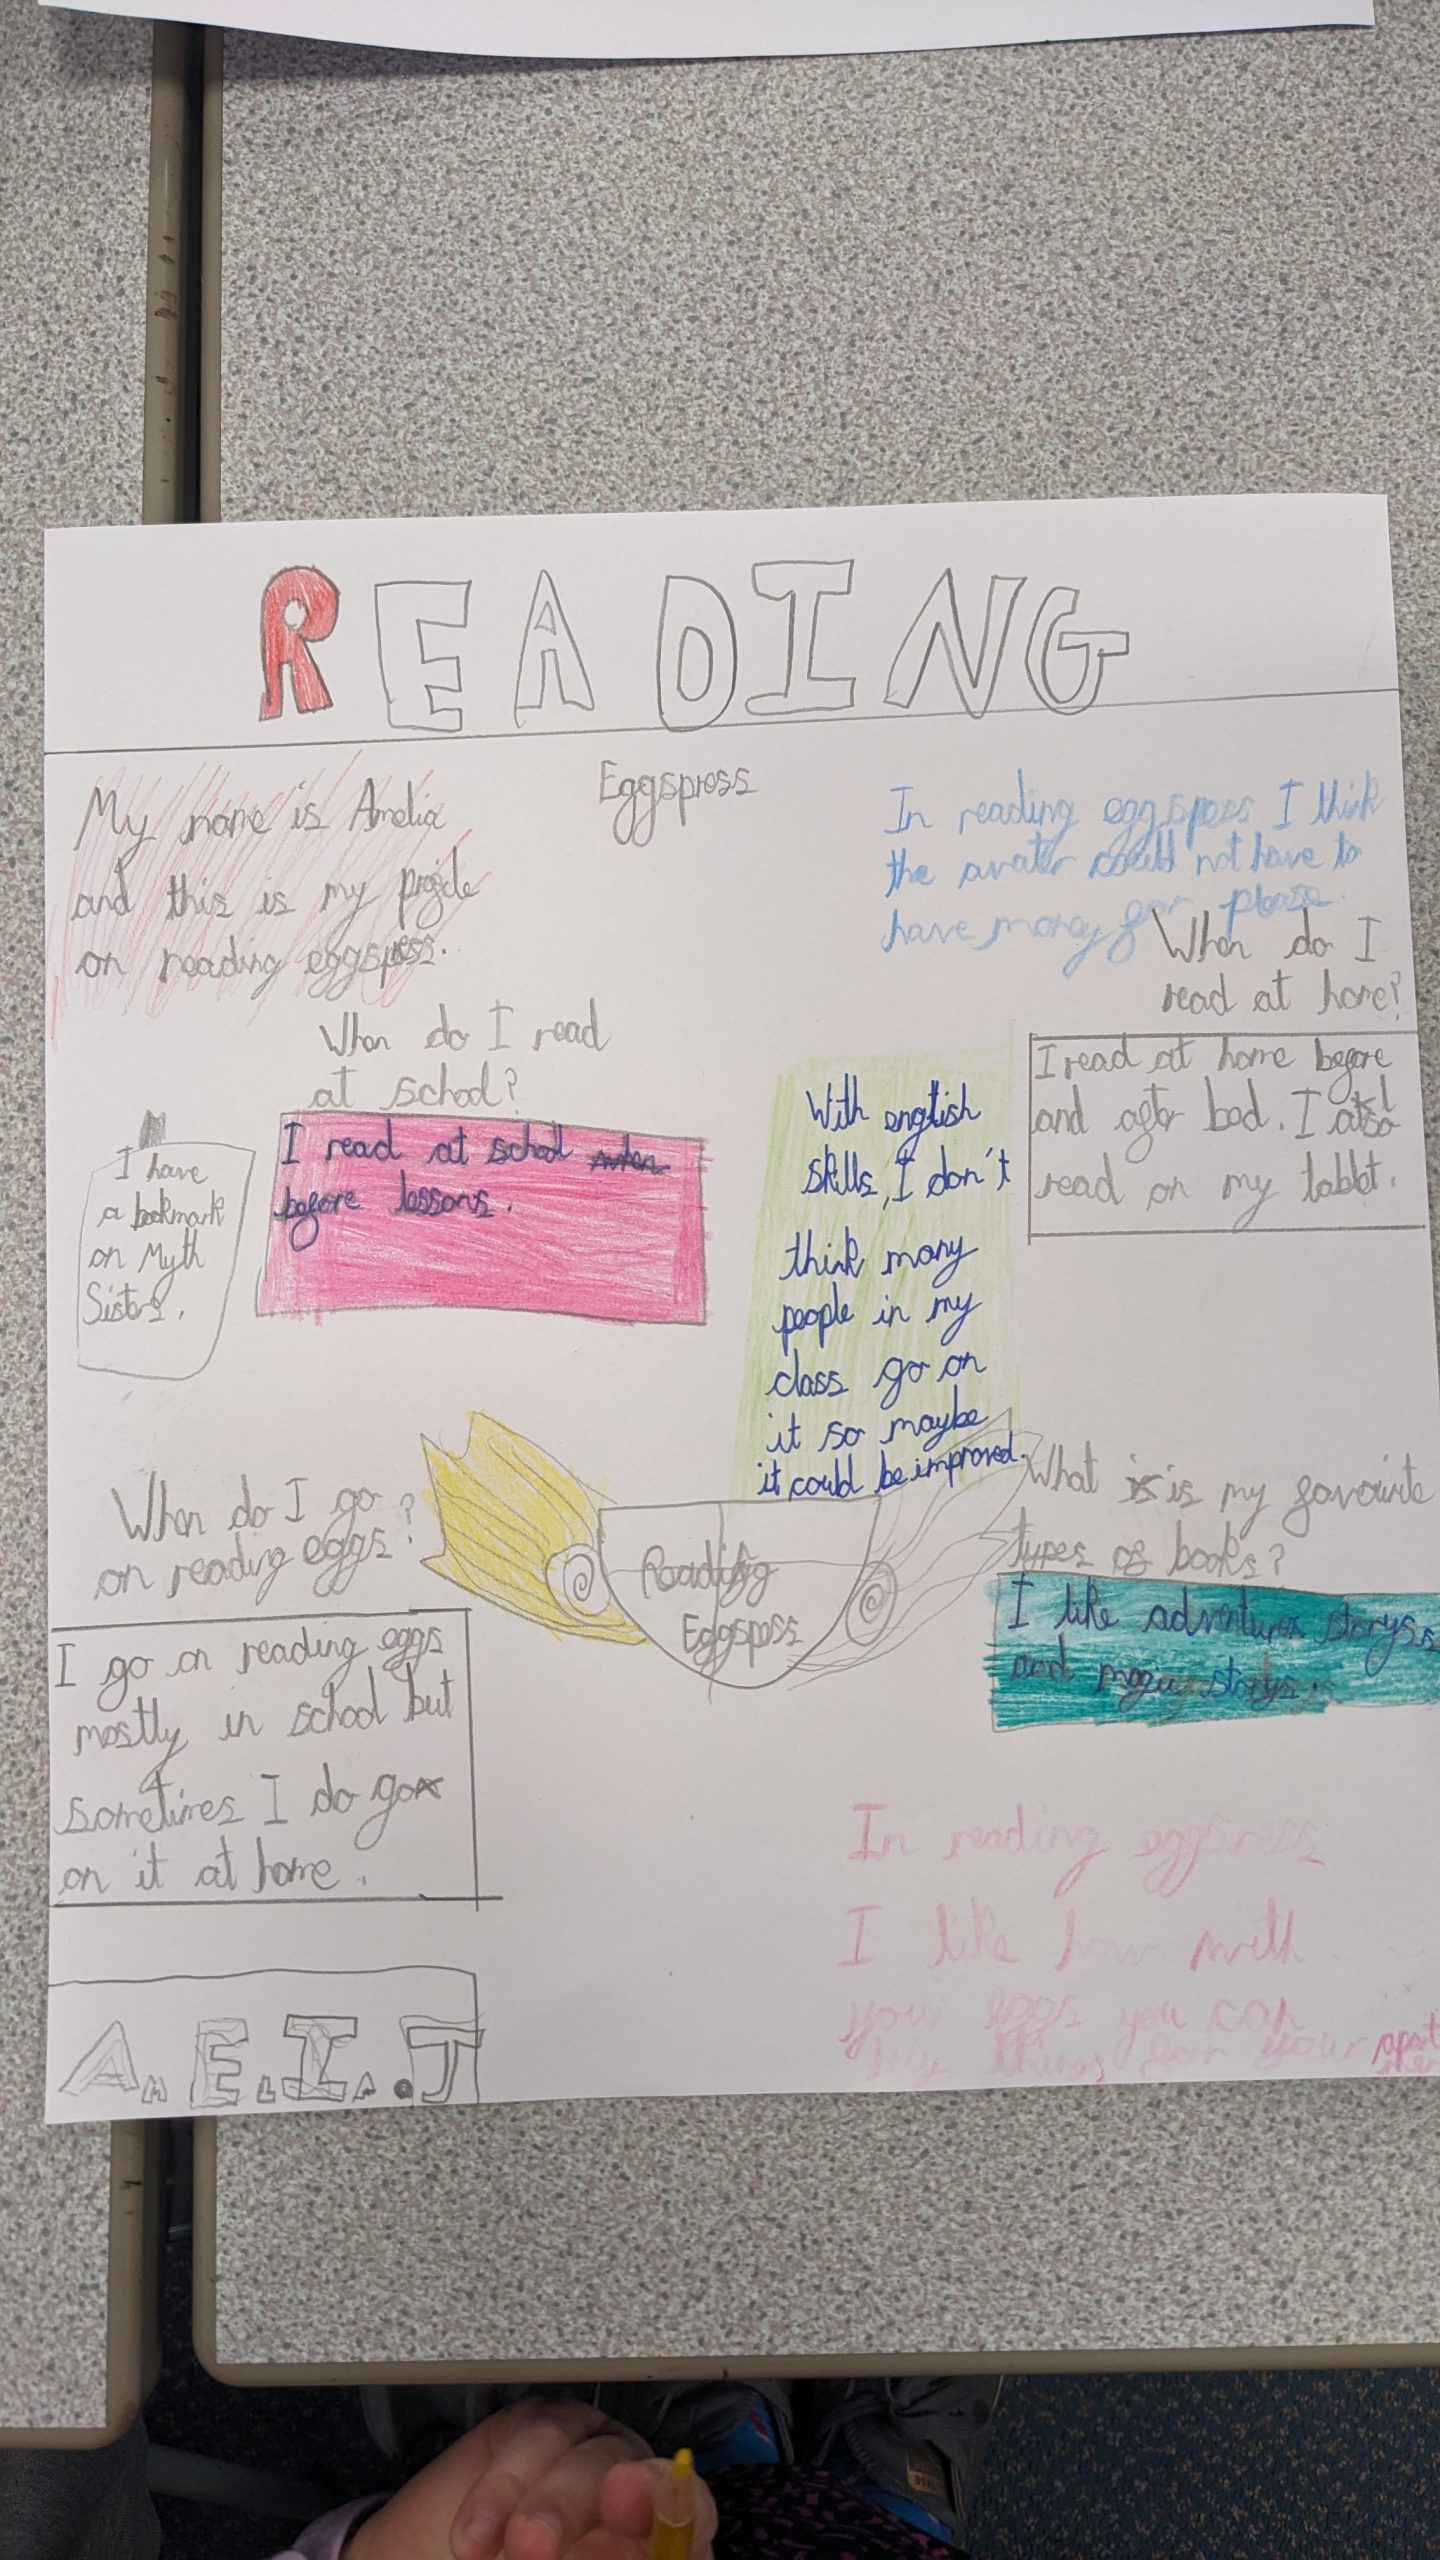 READING
Eggspress
My name is Amelia
and this is my projcle
on reading eggspress.
In reading eggspess I think
the avater could not have to
have many for please.
When do I read
at school?
I read at school
before lessons.
I have
a bookmark
on Myth
Sisters.
When do I
read at home?
I read at home before
and after bed. I also
read on my tablet.
With english
skills, I don't
think many
people in my
class go on
it so maybe
it could be improved.
When do I go
on reading eggs?
I go on reading eggs
mostly in school but
sometimes I do go
on it at home.
Reading
Eggspess
What is is my favourite
types of books?
I like adventures storyss
and storys.
In reading eggspress
I like how with
your eggs you can
buy things for your apart
A.M E.L I.A.J